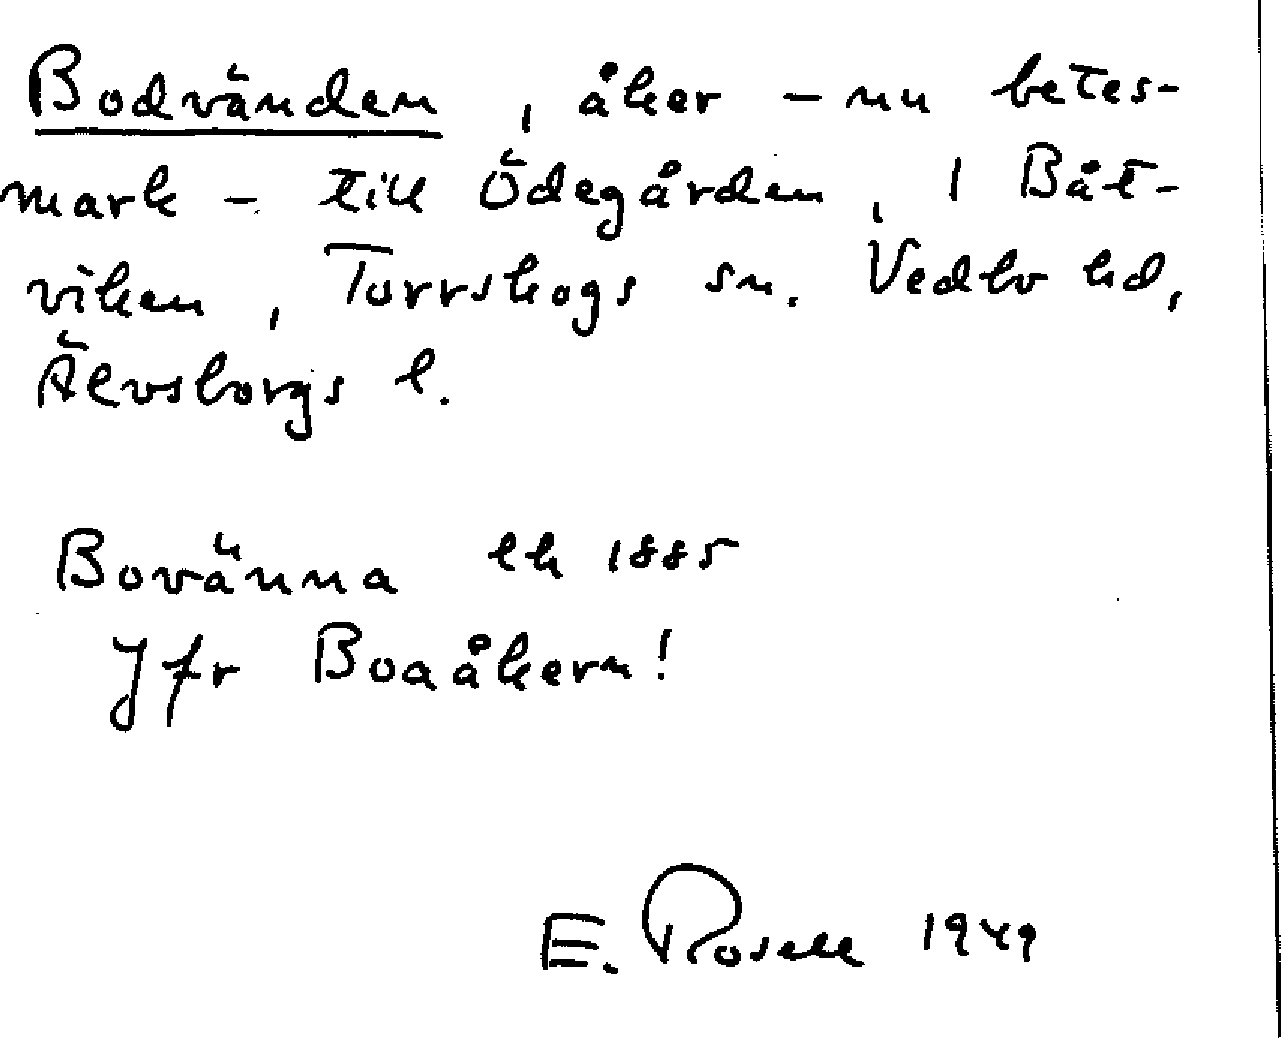 Bodvänden, åker - nu betes-
mark - till Ödegården, 1 Båt-
viken, Torrskogs sn. Vedbo hd,
Älvsborgs l.
Bovänna ek 1885
Jfr Boaåkern!
E. Rosell 1949